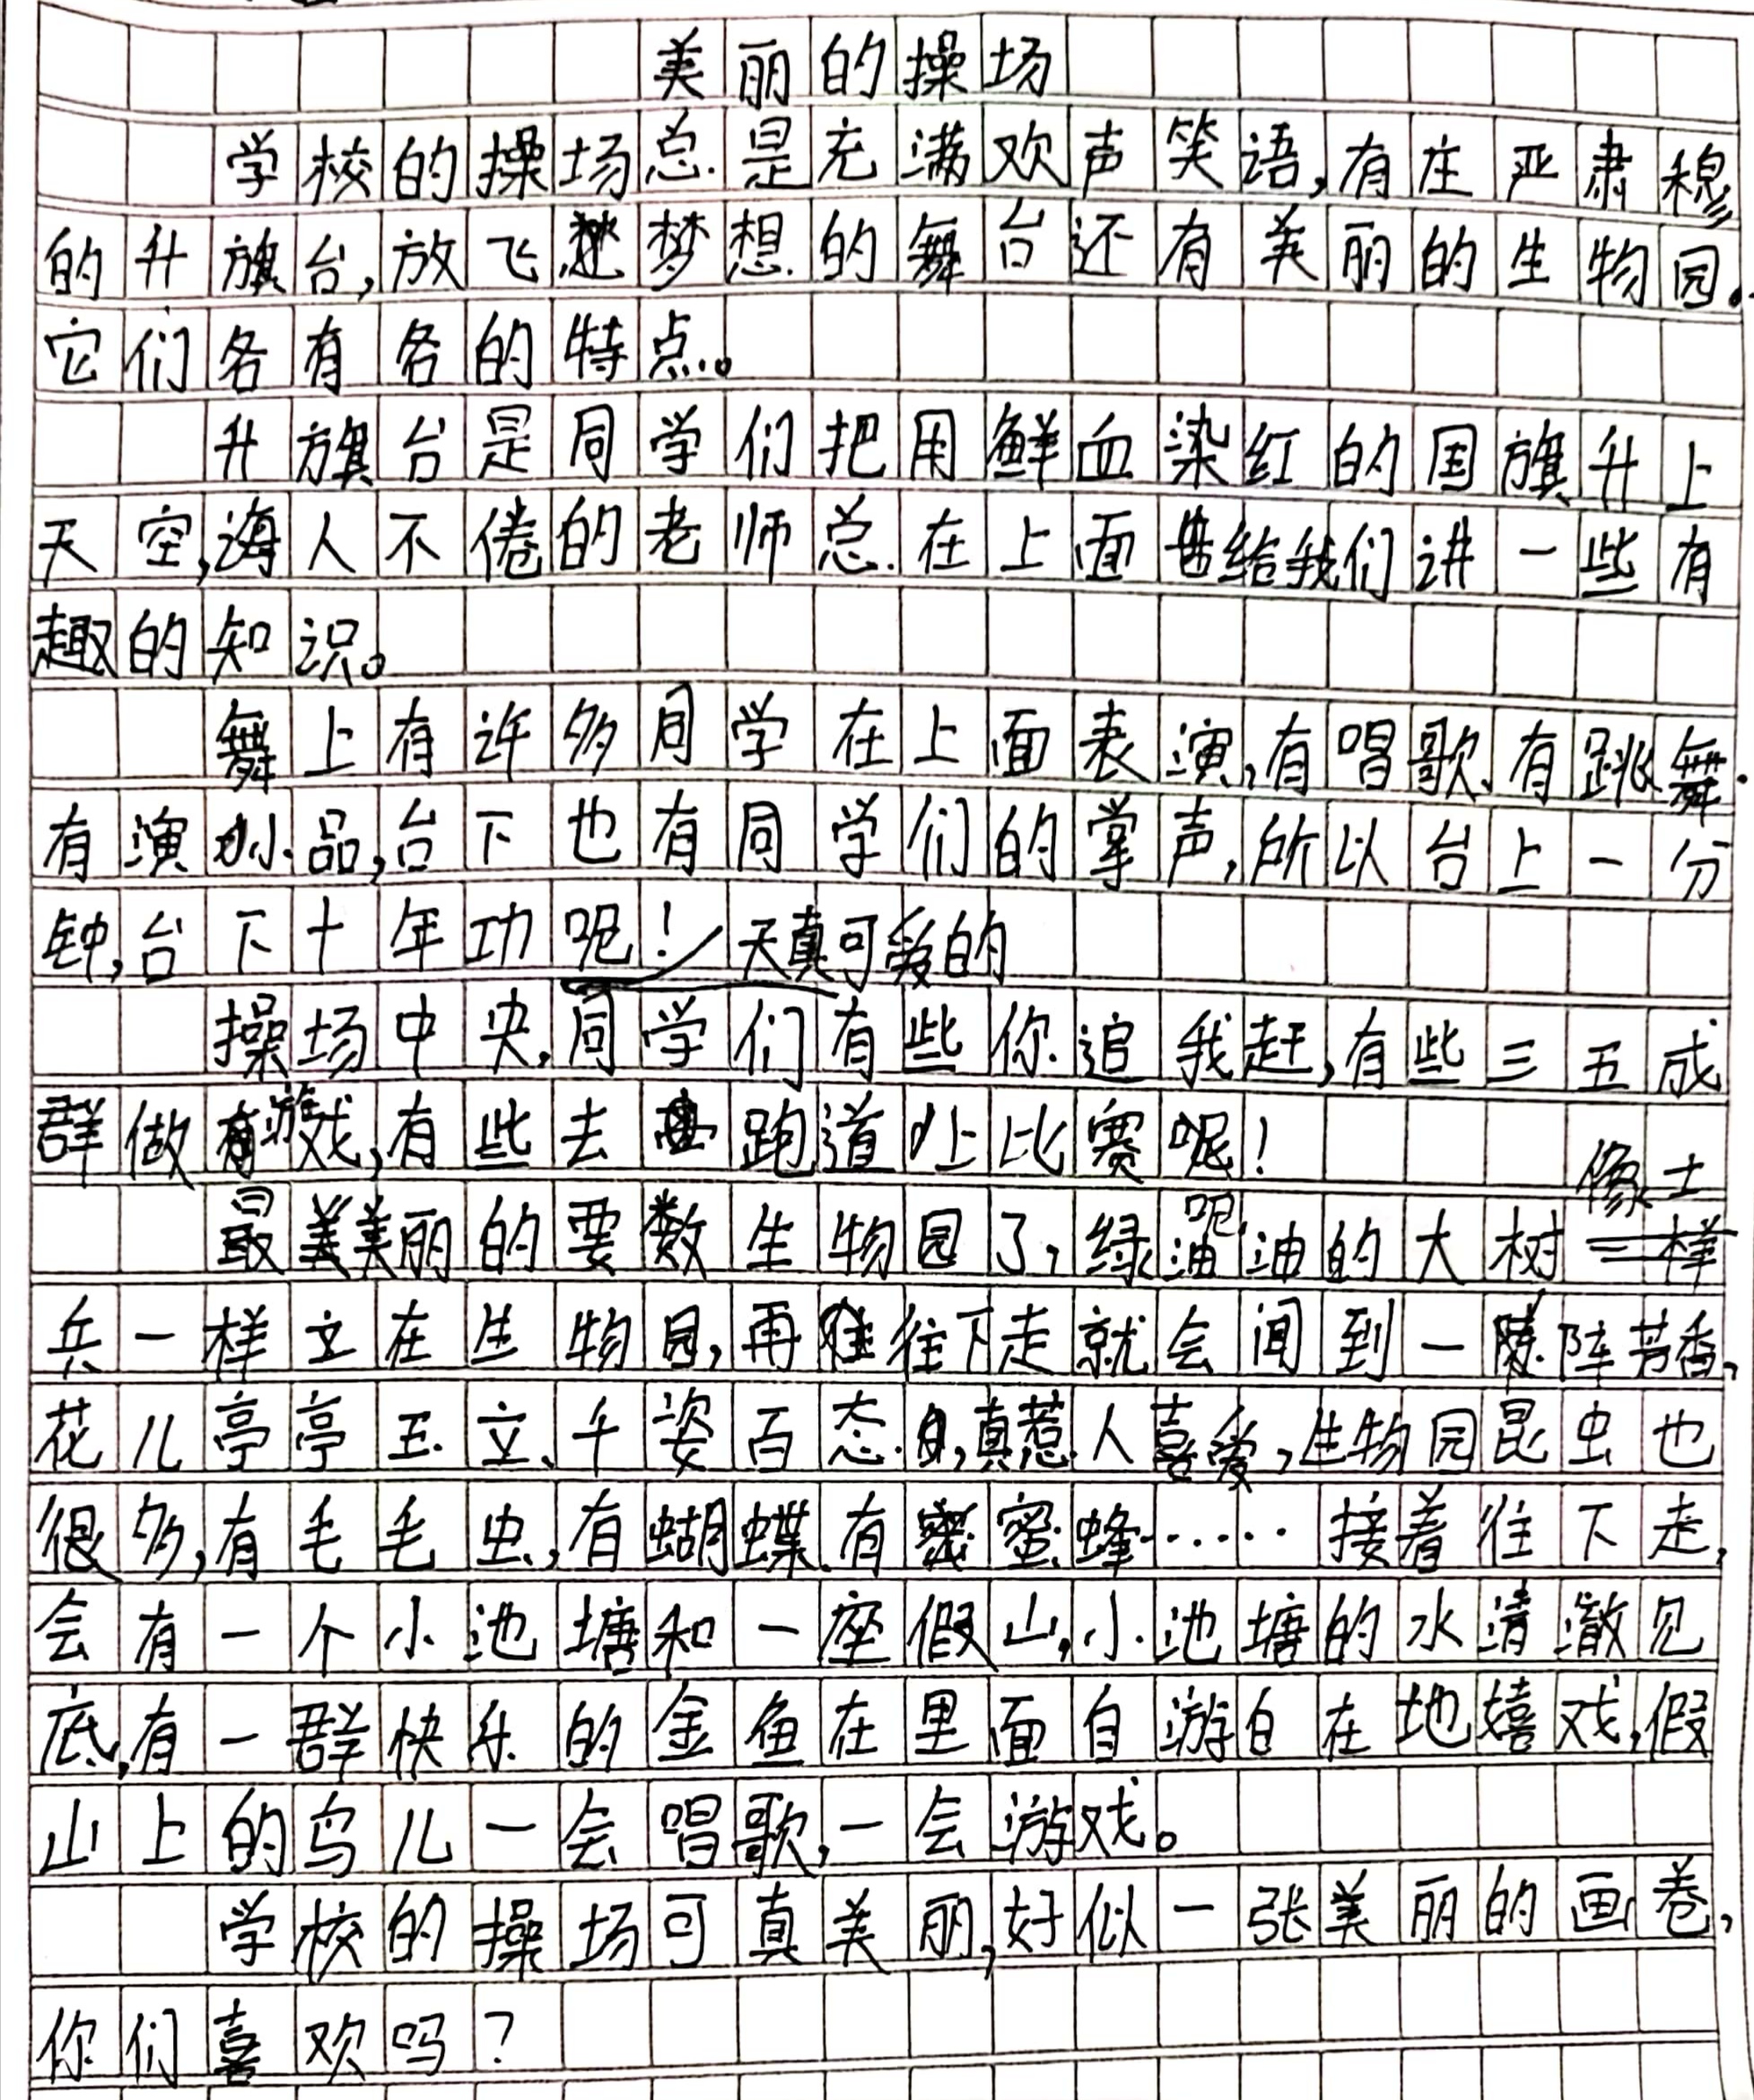 美丽的操场
学校的操场总是充满欢声笑语,有庄严肃穆
的升旗台,放飞梦想的舞台还有美丽的生物园。
它们各有各的特点。
升旗台是同学们把用鲜血染红的国旗升上
天空,海人不倦的老师总在上面给我们讲一些有
趣的知识。
舞上有许多同学在上面表演,有唱歌、有跳舞.
有演小品,台下也有同学们的掌声,所以台上一分
钟,台下十年功呢!
天真可爱的
操场中央,同学们有些你追我赶,有些三五成
群做游戏,有些去跑道上比赛呢!
像士
最美丽的要数生物园了,绿油油的大树
呢
兵一样立在生物园,再往下走就会闻到一阵阵芳香,
花儿亭亭玉立、千姿百态,真惹人喜爱,生物园昆虫也
很多,有毛毛虫,有蝴蝶、有蜜蜂……接着往下走,
会有一个小池塘和一座假山,小池塘的水清澈见
底,有一群快乐的金鱼在里面自游自在地嬉戏,假
山上的鸟儿一会唱歌,一会游戏。
学校的操场可真美丽,好似一张美丽的画卷,
你们喜欢吗?